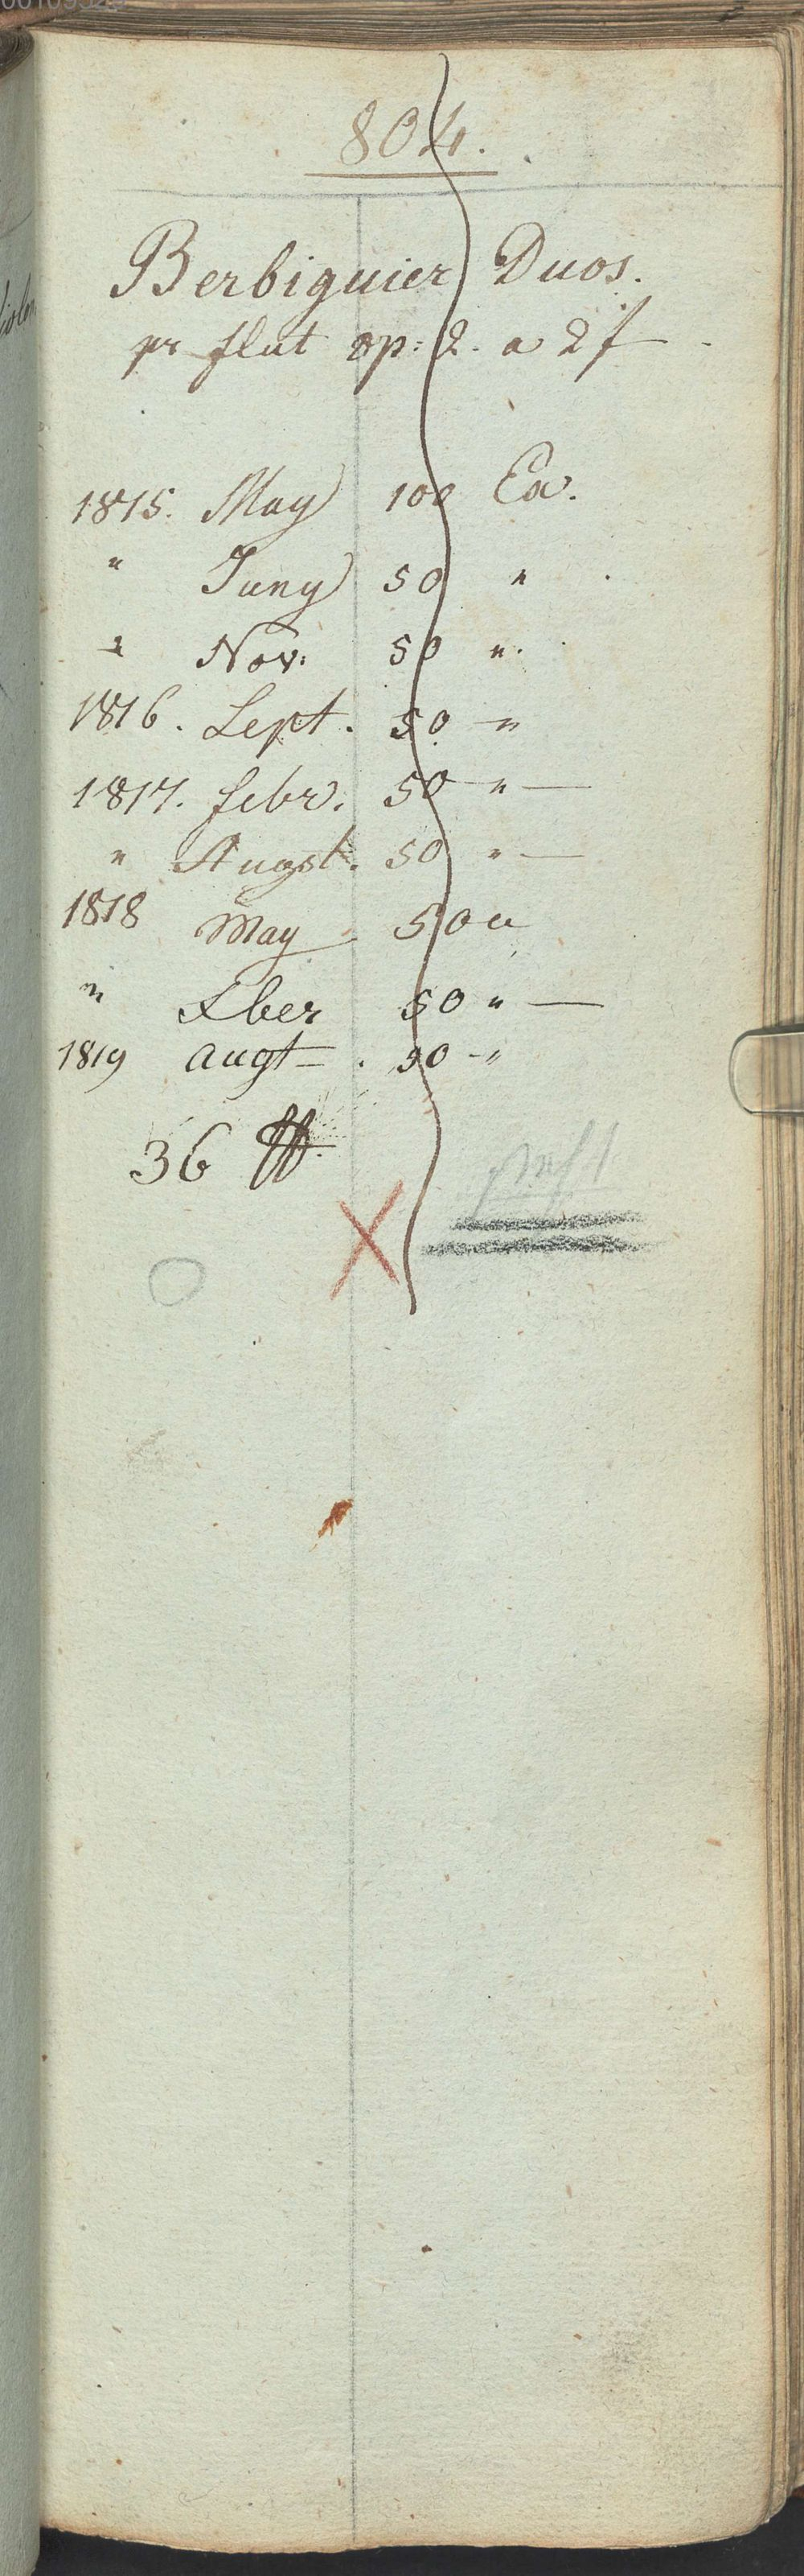 804.
Berbiguier Duos.
pr flut op: 2. a 2f
1815. May 100 Ex.
" Juny 50 "
" Nov: 50 ".
1816. Sept. 50 "
1817. febr. 50 " —
" Augst. 50 " —
1818 May 50 "
" Xber 50 " —
1819 Augt — . 50 - "
36